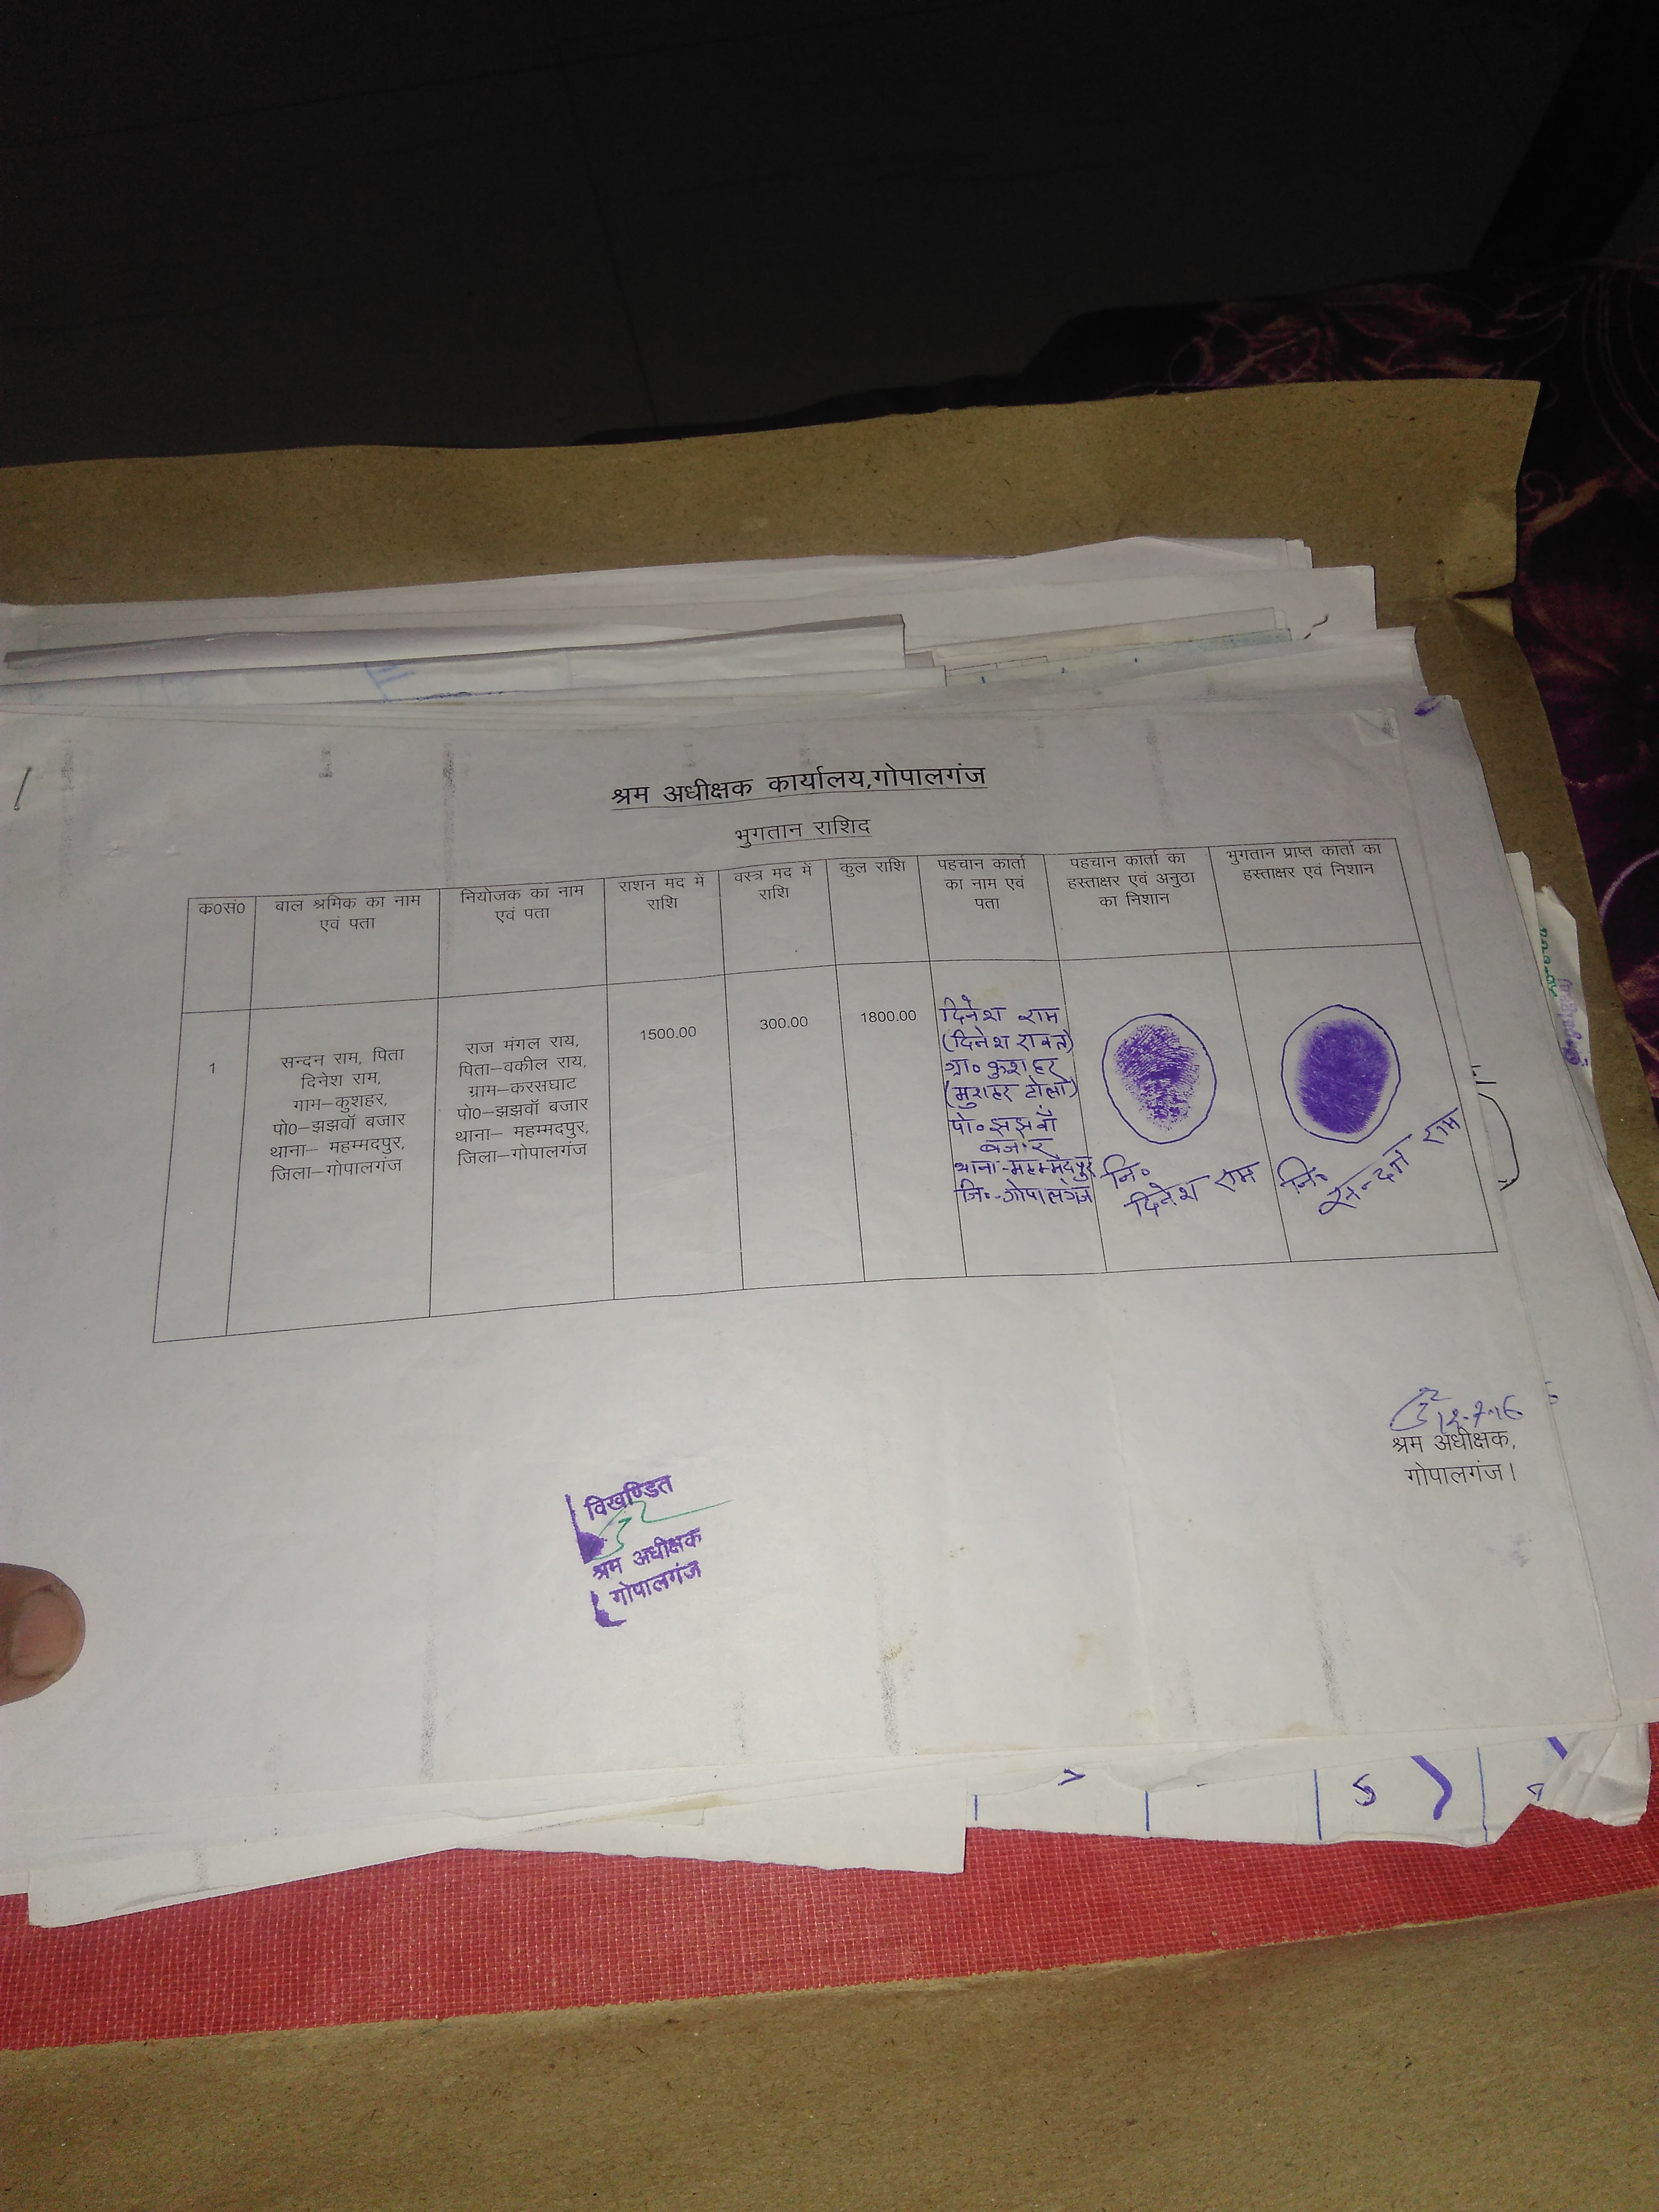 श्रम अधीक्षक कार्यालय,गोपालगंज
भुगतान राशिद
क0सं0
बाल श्रमिक का नाम
एवं पता
नियोजक का नाम
एवं पता
राशन मद में
राशि
वस्त्र मद में
राशि
कुल राशि
पहचान कार्ता
का नाम एवं
पता
पहचान कार्ता का
हस्ताक्षर एवं अनुठा
का निशान
भुगतान प्राप्त कार्ता का
हस्ताक्षर एवं निशान
1
सन्दन राम, पिता
दिनेश राम,
गाम–कुशहर,
पो0–झझवॉ बजार
थाना– महम्मदपुर,
जिला–गोपालगंज
राज मंगल राय,
पिता–वकील राय,
ग्राम–करसघाट
पो0–झझवॉ बजार
थाना– महम्मदपुर,
जिला–गोपालगंज
1500.00
300.00
1800.00
दिनेश राम
(दिनेश रावत)
ग्रा० कुशहर
(मुशहर टोला)
पो० झझवाँ
बजार
थाना-महम्मदपुर
जि०-गोपालगंज
नि०
दिनेश राम
नि०
सन्दन राम
श्रम अधीक्षक,
गोपालगंज।
विखण्डित
श्रम अधीक्षक
गोपालगंज